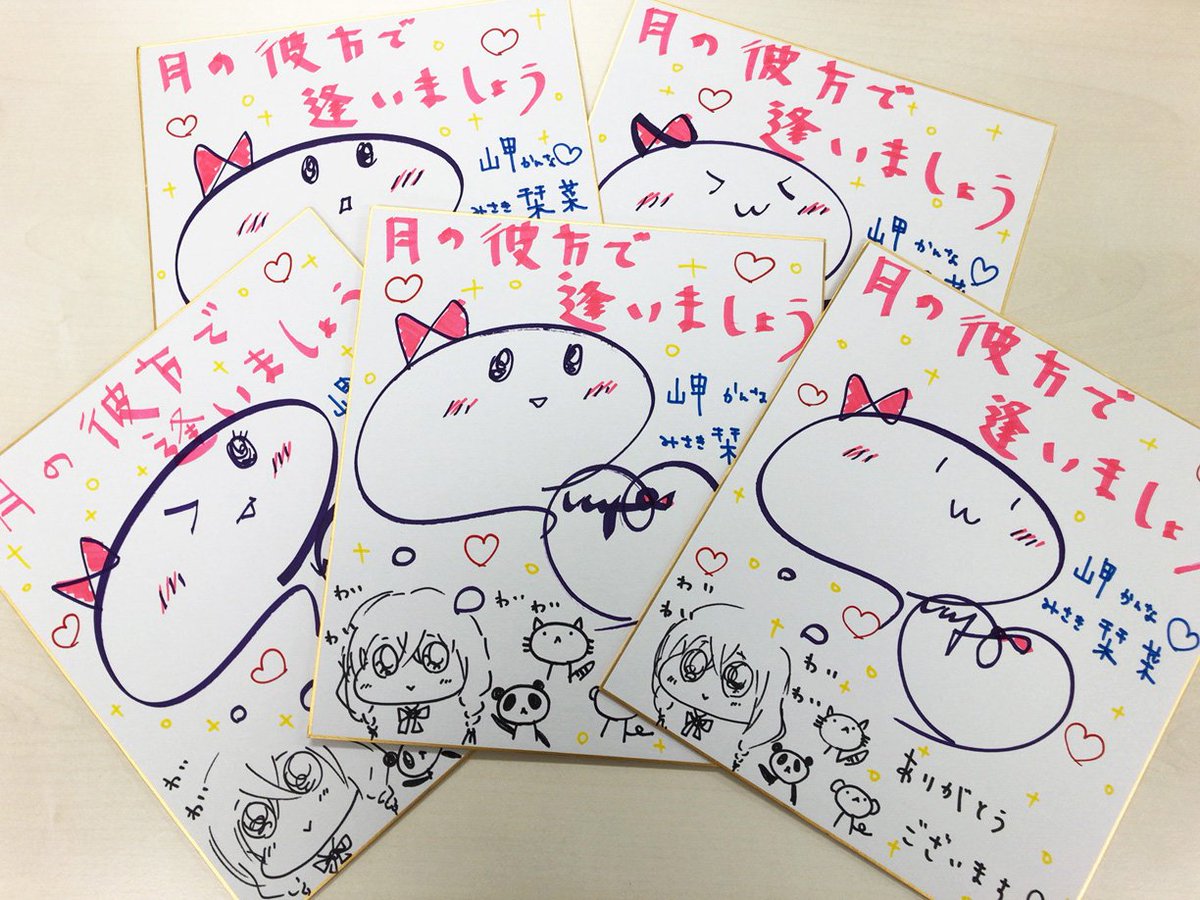 月の彼方で
逢いましょう
岬 かんな
みさき 栞菜
月の彼方で
逢いましょう
岬 かんな
月の彼方で
逢いましょう
わい
わい
月の彼方で
逢いましょう
岬 かんな
みさき 栞
わい
わい
わい
わい
月の彼方で
逢いましょ
岬 かんな
みさき 栞菜
わい
わい
わい
わい
ありがとう
ございます